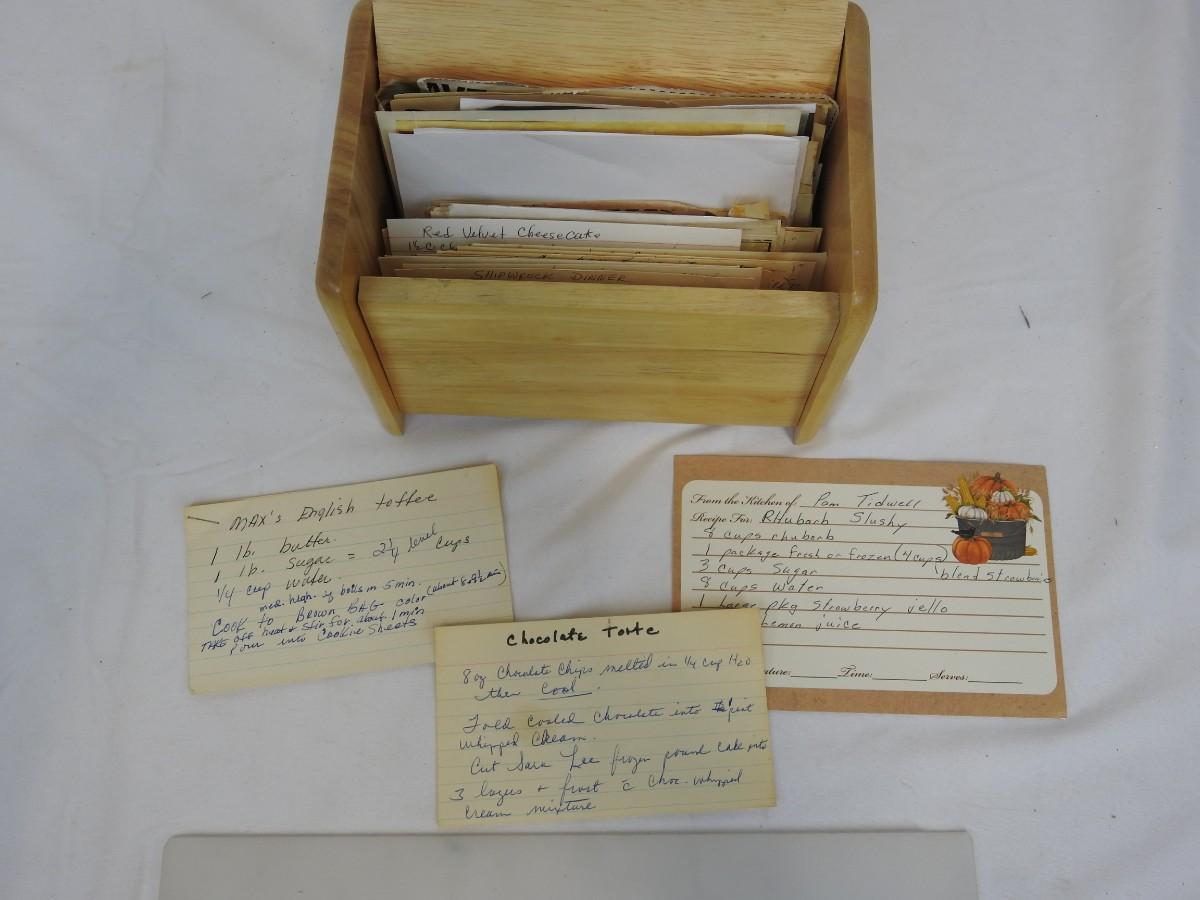 Red Velvet CheeseCake
SHIPWRECK DINNER
MAX's English toffee
1 lb. butter.
1 lb. sugar = 2 1/4 level cups
1/4 cup water
med. high - boils in 5 min.
COOK to BROWN BAG color (about
TAKE off heat & stir for about 1 min
Pour into Cookie Sheets
From the Kitchen of Pam Tidwell
Recipe For: RHubarb Slushy
8 cups rhubarb
1 package fresh or frozen (4 cups)
3 cups Sugar blend strawberries
8 cups water
1 large pkg strawberry jello
lemon juice
Time: Serves:
Chocolate Torte
8 oz Chocolate Chips melted in 1/4 cup H2O
then Cool.
Fold cooled chocolate into 1 pint
whipped Cream.
Cut Sara Lee frozen pound cake into
3 layers + frost c̄ choc. whipped
cream mixture